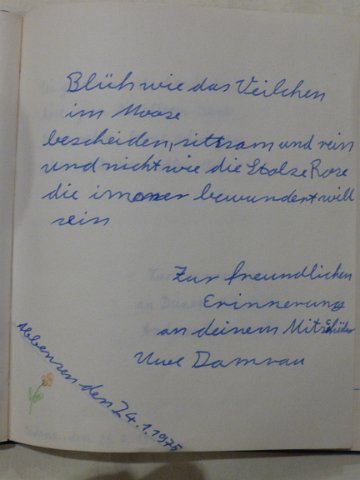 Blüh wie das Veilchen
im Moose
bescheiden, sittsam und rein
und nicht wie die Stolze Rose
die immer bewundert will
sein
Zur freundlichen
Erinnerung
an deinem Mitschüler
Uwe Damrau
Abbensen den 24.1.1975